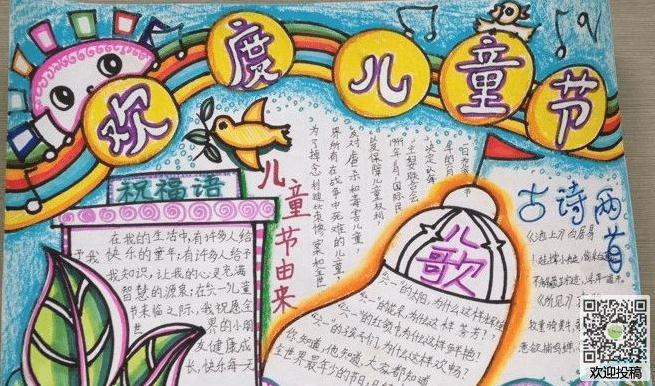 欢度儿童节
祝福语
在我的生活中,有许多人给
予我快乐的童年;有许多人给予
我知识,让我的心灵充满
智慧的源泉;在六一儿童
节来临之际,我祝愿全
世界的小朋
友健康成
长,快乐每一
儿童节由来
为了悼念利迪策惨案和全世
界所有在战争中死难的儿童,
反对虐杀和毒害儿童,
以及保障儿童权利,
1949年11月,国际民
主妇联合会
决定以每
年的6月
1日为儿童节
儿歌
"六一"的太阳,为什么这样
"六一"的花朵,为什么这样芬芳?
"六一"的红领巾为什么这样鲜艳?
"六一"的孩子们,为什么这样欢畅?
你知道,他知道,大家都知道
全世界最年少的节日
古诗两首
《池上》白居易
小娃撑小艇,偷采白莲
不解藏踪迹,浮萍一道开。
《所见》
牧童骑黄牛,
意欲捕鸣蝉,
欢迎投稿